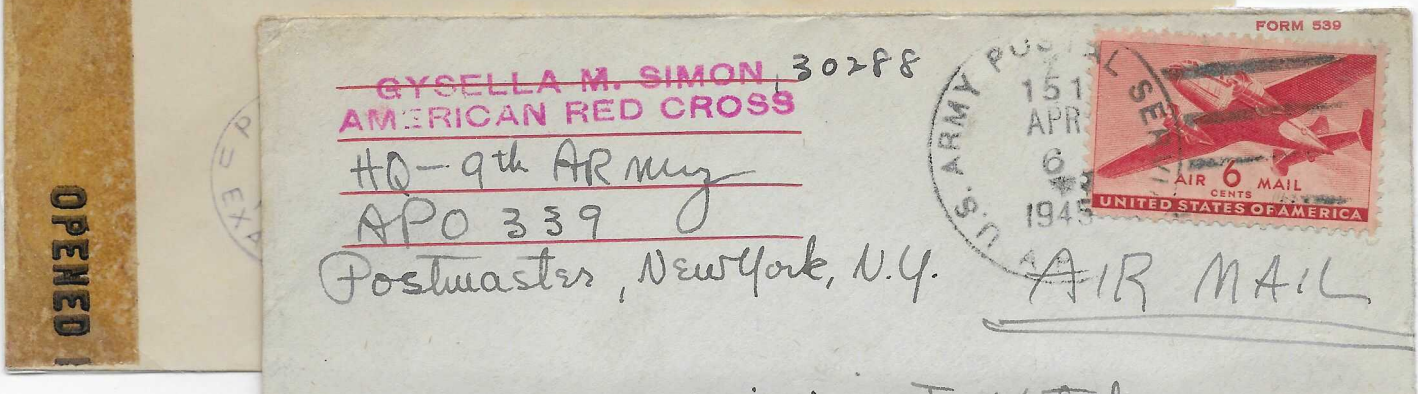 FORM 539
GYSELLA M. SIMON, 30288
AMERICAN RED CROSS
HQ - 9th ARMY
APO 339
Postmaster, New York, N.Y.
U.S. ARMY POSTAL SERVICE
151
APR
6
1945
AIR 6 MAIL
CENTS
UNITED STATES OF AMERICA
AIR MAIL
OPENED